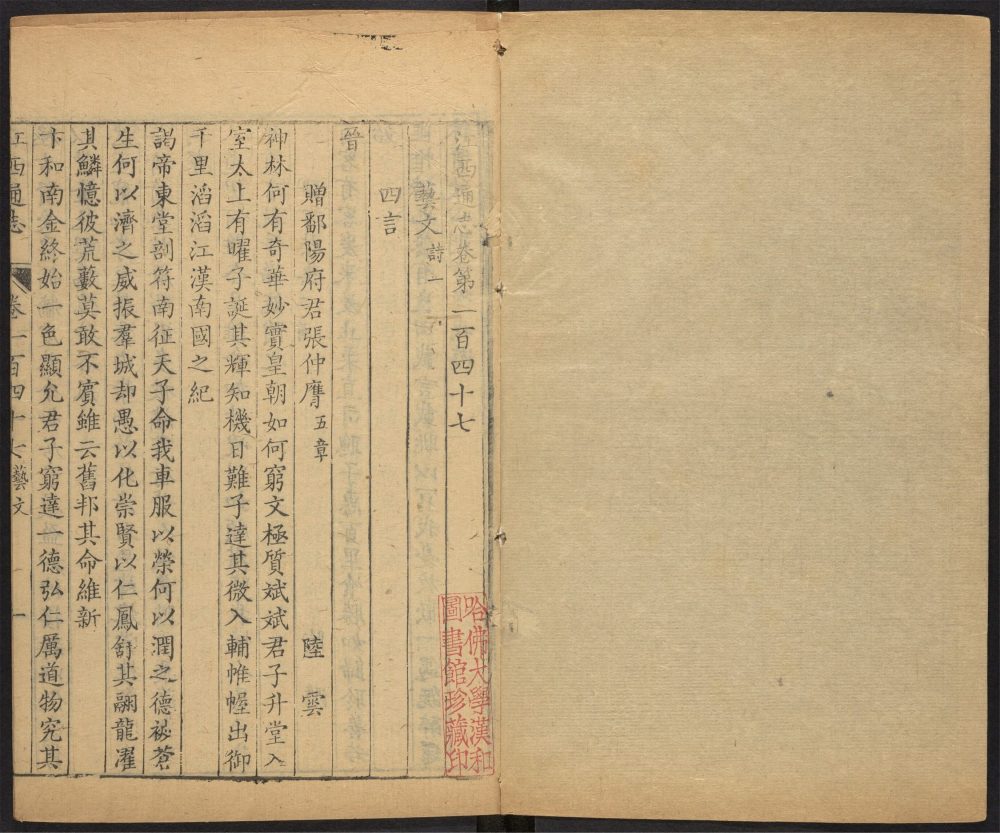 江西通志卷第一百四十七
藝文 詩一
四言
晉
贈鄱陽府君張仲膺 五章 陸雲
神林何有奇華妙實皇朝如何窮文極質斌斌君子升堂入
室太上有曜子誕其輝知機日難子達其微入輔帷幄出御
千里滔滔江漢南國之紀
謁帝東堂剖符南征天子命我車服以榮何以潤之德被蒼
生何以濟之威振羣城却愚以化崇賢以仁鳳舒其翮龍濯
其鱗憶彼荒藪莫敢不賓雖云舊邦其命維新
卞和南金終始一色顯允君子窮達一德弘仁厲道物究其
江西通志 卷一百四十七 藝文 一
哈佛大學漢和
圖書館珍藏印